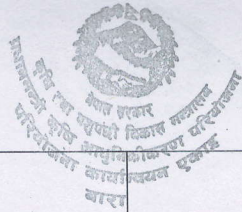 नेपाल सरकार
कृषि तथा पशुपन्छी विकास मन्त्रालय
प्रधानमन्त्री कृषि आधुनिकीकरण परियोजना
परियोजना कार्यान्वयन एकाइ
बारा